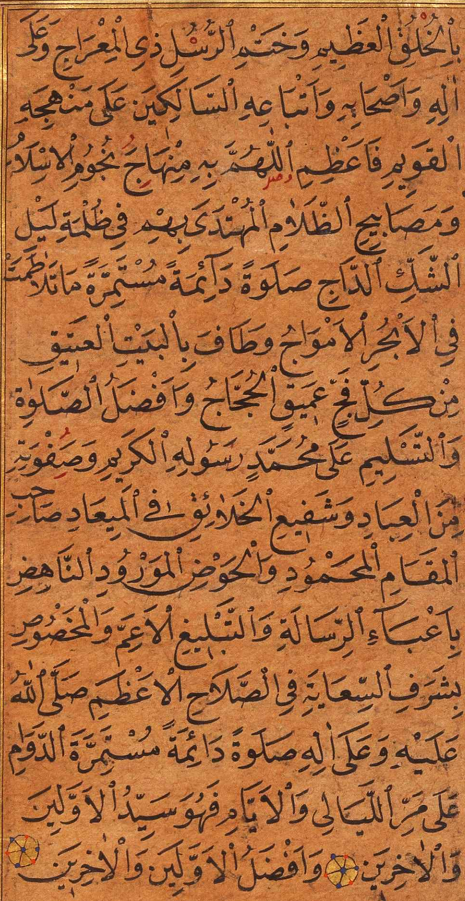 بِٱلْخُلُقِ ٱلْعَظِيمِ وَخَتَمِ ٱلرُّسُلِ ذِي ٱلْمِعْرَاجِ وَعَلَى
اٰلِهِ وَاَصْحَابِهِ وَاَتْبَاعِهِ ٱلسَّالِكِينَ عَلَى مَنْهَجِهِ
ٱلْقَوِيمِ فَاَعْظِمِ ٱللّٰهُمَّ بِهِ مِنْهَاجُ نُجُومِ ٱلْاِسْلَامِ
وَمَصَابِيحِ ٱلظَّلَامِ ٱلْمُهْتَدَى بِهِمْ فِي ظُلْمَةِ لَيْلِ
ٱلشَّكِّ ٱلدَّاجِ صَلٰوةً دَآئِمَةً مُسْتَمِرَّةً مَا تَلَاطَمَتْ
فِي ٱلْاَبْحُرِ ٱلْاَمْوَاجُ وَطَافَ بِٱلْبَيْتِ ٱلْعَتِيقِ
مِنْ كُلِّ فَجٍّ عَمِيقٍ ٱلْحُجَّاجُ وَاَفْضَلُ ٱلصَّلٰوةِ
وَٱلتَّسْلِيمِ عَلَى مُحَمَّدٍ رَسُولِهِ ٱلْكَرِيمِ وَصَفْوَتِهِ
مِنَ ٱلْعِبَادِ وَشَفِيعِ ٱلْخَلَائِقِ فِي ٱلْمِيعَادِ صَاحِبِ
ٱلْمَقَامِ ٱلْمَحْمُودِ وَٱلْحَوْضِ ٱلْمَوْرُودِ ٱلنَّاهِضِ
بِاَعْبَآءِ ٱلرِّسَالَةِ وَٱلتَّبْلِيغِ ٱلْاَعَمِّ وَٱلْمَخْصُوصِ
بِشَرَفِ ٱلسِّعَايَةِ فِي ٱلصَّلَاحِ ٱلْاَعْظَمِ صَلَّى ٱللّٰهُ
عَلَيْهِ وَعَلَى اٰلِهِ صَلٰوةً دَائِمَةً مُسْتَمِرَّةَ ٱلدَّوَامِ
عَلَى مَرِّ ٱللَّيَالِي وَٱلْاَيَّامِ فَهُوَ سَيِّدُ ٱلْاَوَّلِينَ
وَٱلْاٰخِرِينَ وَاَفْضَلُ ٱلْاَوَّلِينَ وَٱلْاٰخِرِينَ